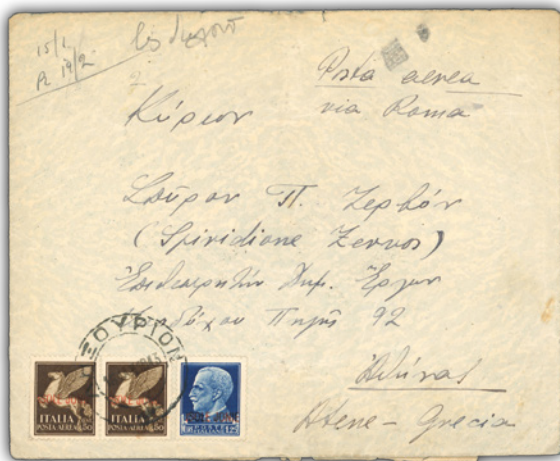 15/1
19/2
Posta aerea
via Roma
Κύριον
Σπύρον Π. Ζερβόν
(Spiridione Zervos)
Ἐπιθεωρητὴν Δημ. Ἔργων
Πηγῆς 92
Ἀθήνας
Atene - Grecia
ΞΟΥΡΙΟΝ
ITALIA
POSTA AEREA
50
ITALIA
POSTA AEREA
50